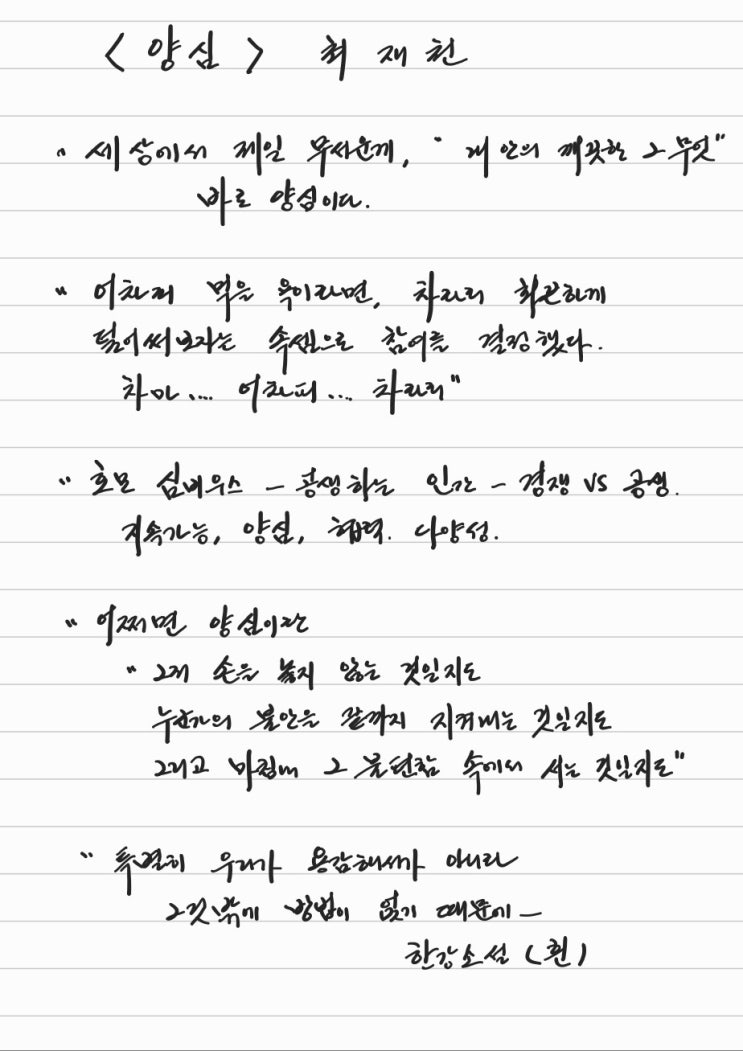 < 양심 > 최재천
" 세상에서 제일 무서운게, " 내 안의 깨끗한 그 무엇"
바로 양심이다.
" 어차피 먹을 욕이라면, 차라리 화끈하게
덜어써보자는 속셈으로 참여를 결정했다.
차마.... 어차피... 차라리"
" 호모 심비우스 - 공생하는 인간 - 경쟁 VS 공생.
지속가능, 양심, 협력. 다양성.
" 어쩌면 양심이란
" 그저 손을 놓지 않는 것일지도
누군가의 불안을 끝까지 지켜내는 것일지도
그리고 마침내 그 불편함 속에서 서는 것일지도"
" 특별히 우리가 용감해서가 아니라
그것밖에 방법이 없기 때문에 -
한강소설 (흰)